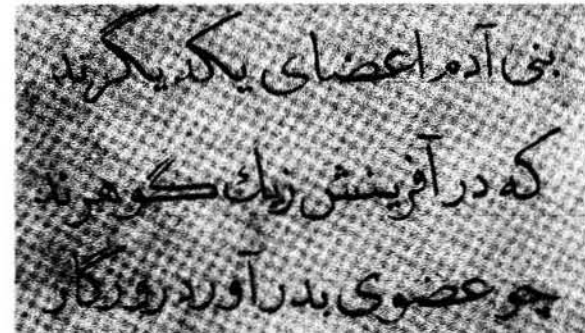 بنی آدم اعضای یکدیگرند
که در آفرینش زیك گوهرند
چو عضوی بدرآورد روزگار